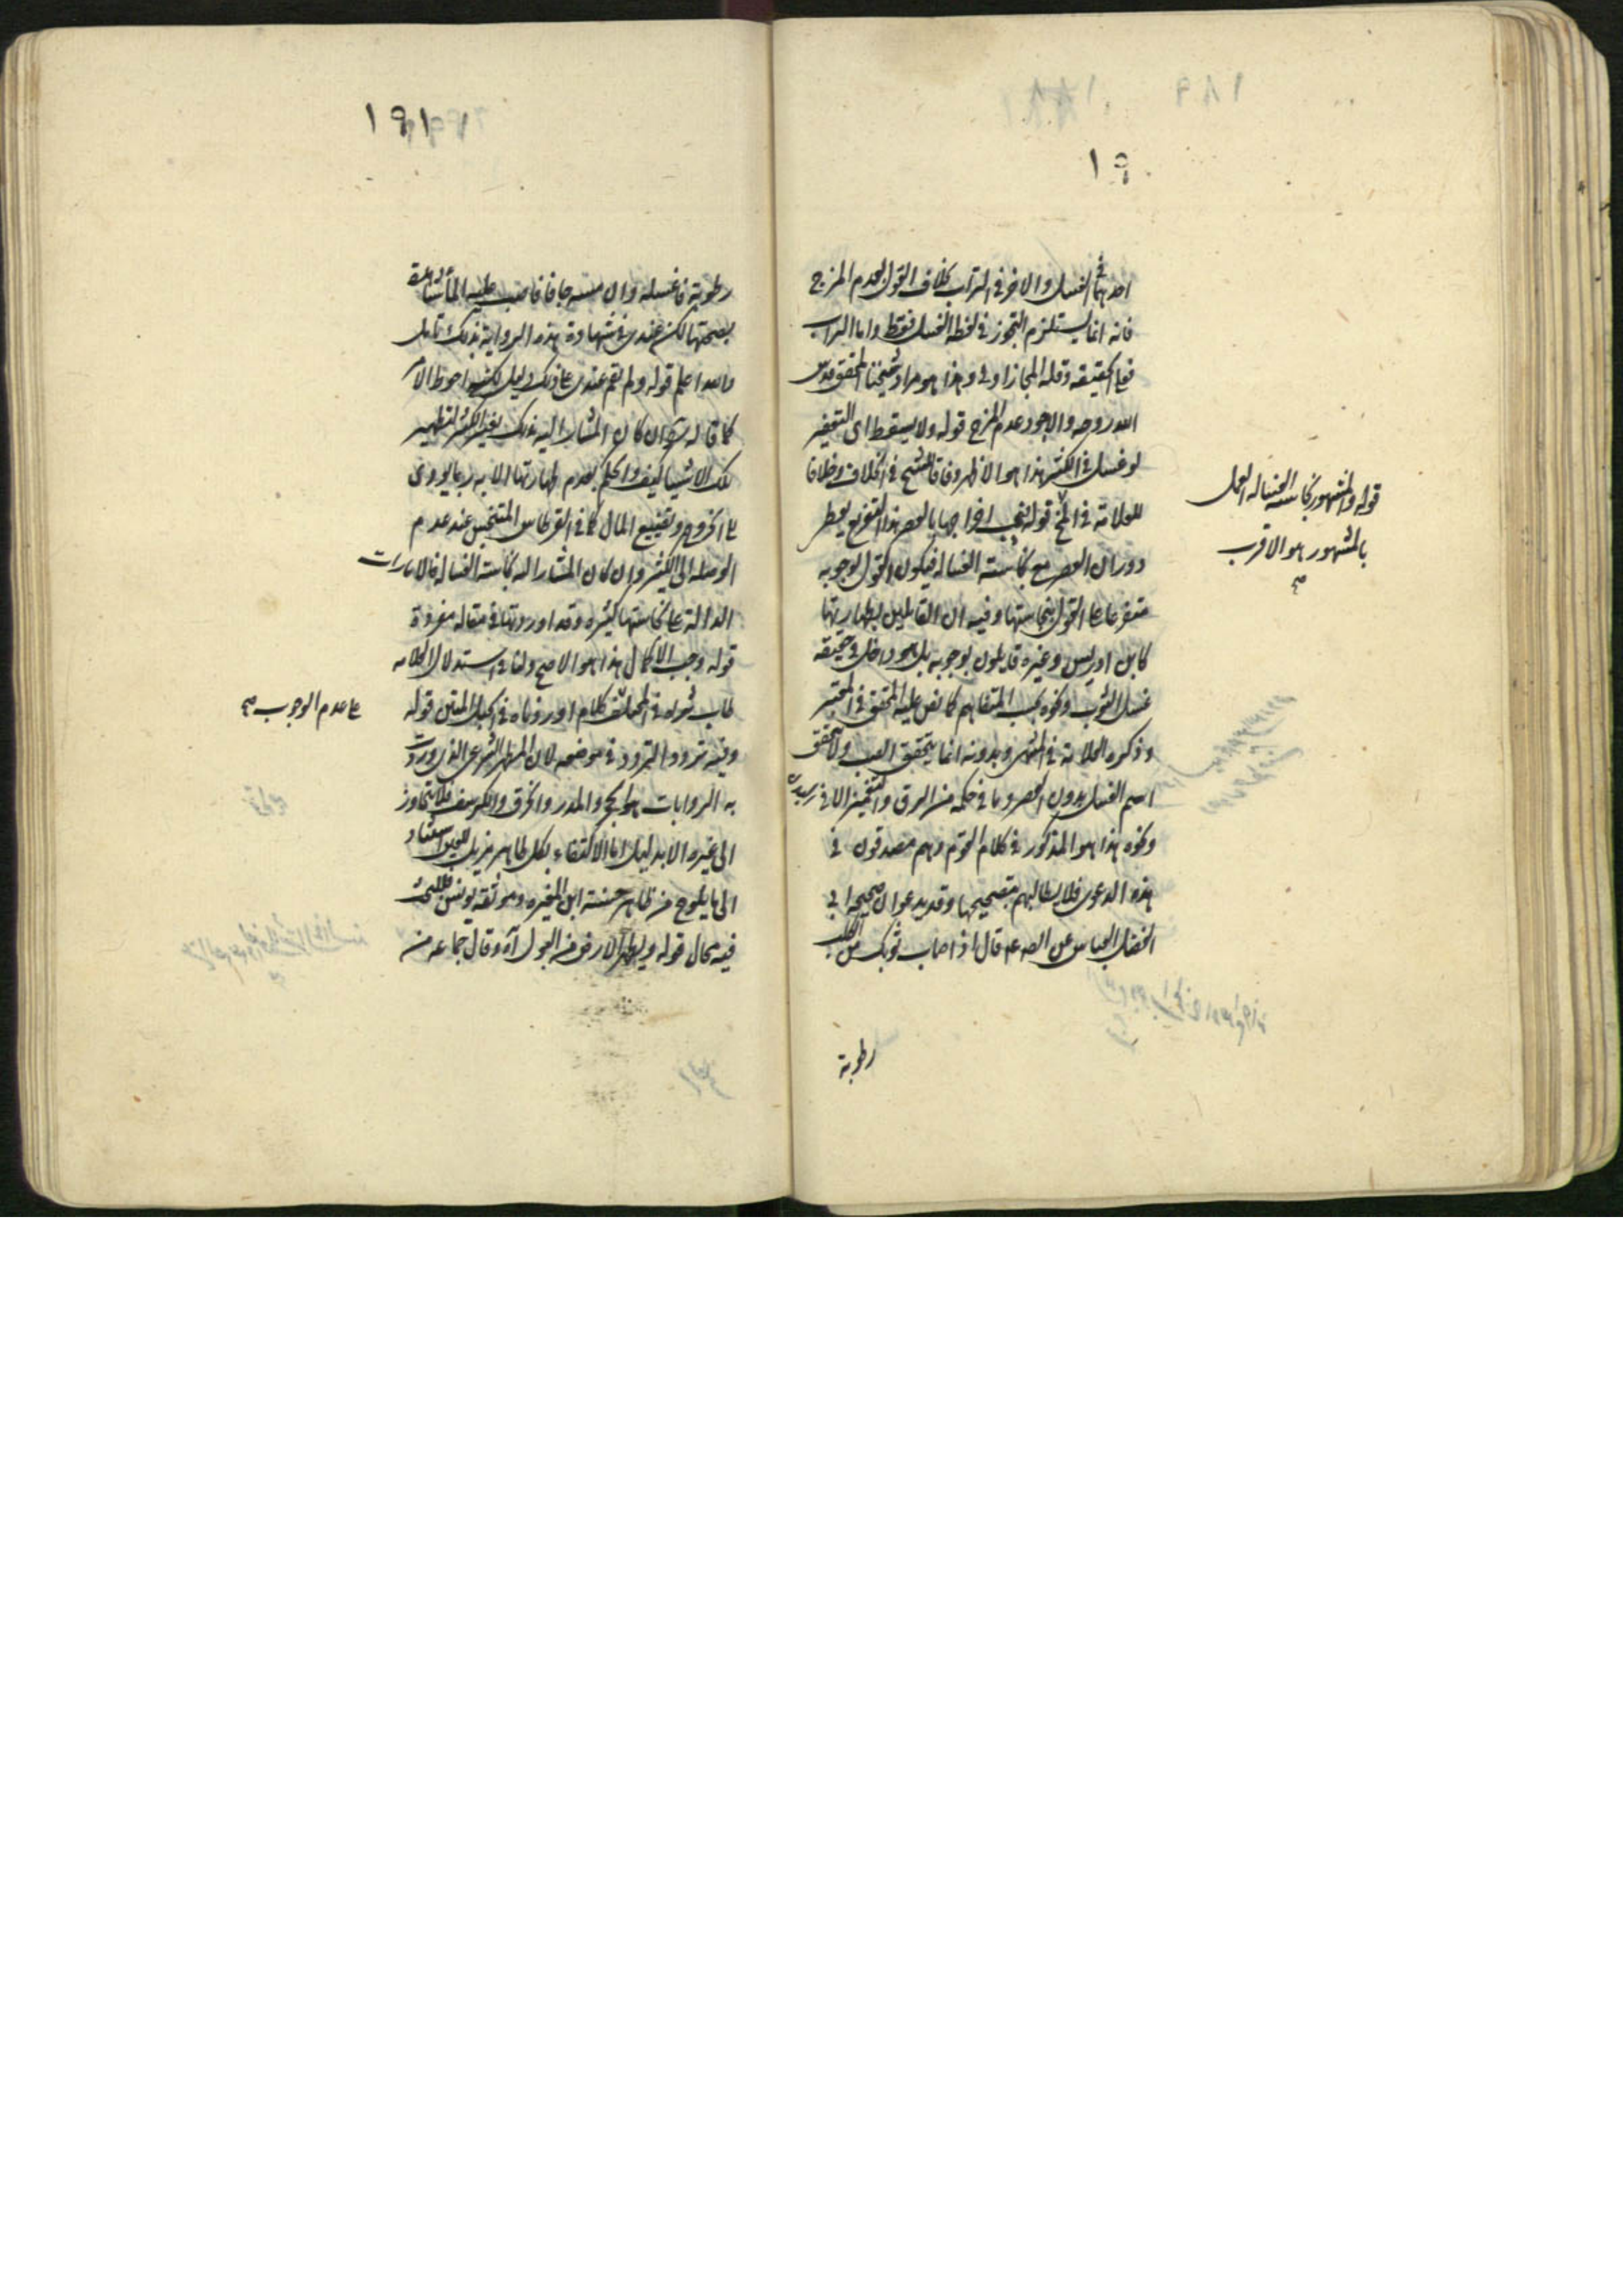 ١٩٠
احدهما في الغسل والاخر في التراب بخلاف القول بعدم المزج
فانه انما يستلزم التجوز في لفظه الغسل فقط واما التراب
فعلى الحقيقه وقله المجاز اولى وهذا هو مراد شيخنا المحقق قدس
الله روحه والاجود عدم المزج قوله ولا يسقط اى التعفير
لو غسل في الكثير هذا هو الاظهر وفاقا للشيخ في الخلاف وخلافا
للعلامة في المخ قوله فيجب اخراجها بالعصر هذا التفريع يعطى
دوران العصر مع نجاسته الغساله فيكون القول بوجوبه
متفرعا على القول بنجاستها وفيه ان القايلين بطهارتها
كابن ادريس وغيره قايلون بوجوبه بل هو داخل في حقيقه
غسل الثوب ونحوه بحسب المتفاهم كما نص عليه المحقق في المعتبر
وذكره العلامة في المنتهى وبدونه انما يتحقق الصب ولا يتحقق
اسم الغسل بدون العصر وما في حكمه من الدق والتغميز الا في
ونحوه هذا هو المذكور في كلام القوم وهم مصدقون في
هذه الدعوى فلا يطالبهم بتصحيحها وقد يدعوا ان صحيحة ابى
الفضل العباس عن الصه عم قال اذا اصاب ثوبك من الكلب
رطوبة
قوله والمشهور نجاسته الغساله العمل
بالمشهور هو الاقرب
صح
١٩١
رطوبة فاغسله وان مسه جافا فاصبب عليه الماء
بصحتها لكن عندى في شهادة هذه الرواية بذلك تامل
والله اعلم قوله ولم يقم عندى على ذلك دليل
كما قاله ان كان المشار اليه بذلك
تلك الاشياء كيف والحكم بعدم طهارتها الا به ربما يودى
على الحروج وتضييع المال كما في القرطاس المتنجس عند عدم
الوصله الى الكثير وان كان المشار اليه نجاسته الغساله فالامارات
الداله على نجاستها كثيره وقد اوردتها في مقاله مفردة
قوله وجب الاكمال هذا هو الاصح ولنا في استدلال العلامه
طاب ثراه في المختلف كلام اوردناه في الحبل المتين قوله
وفيه تردد التردد في موضعه لان المطهر الشرعى الذى وردت
به الروايات هو الحجر والمدر والخرق والكرسف فلا يتجاوز
الى غيره الا بدليل اما الاكتفاء بكل طاهر مزيل للعين استنادا
الى ما يلوح من ظاهر حسنة ابن المغيره وموثقه يونس فللبحث
فيه مجال قوله ويطهر الارض من البول آه وقال جماعه من
على عدم الوجوب صح